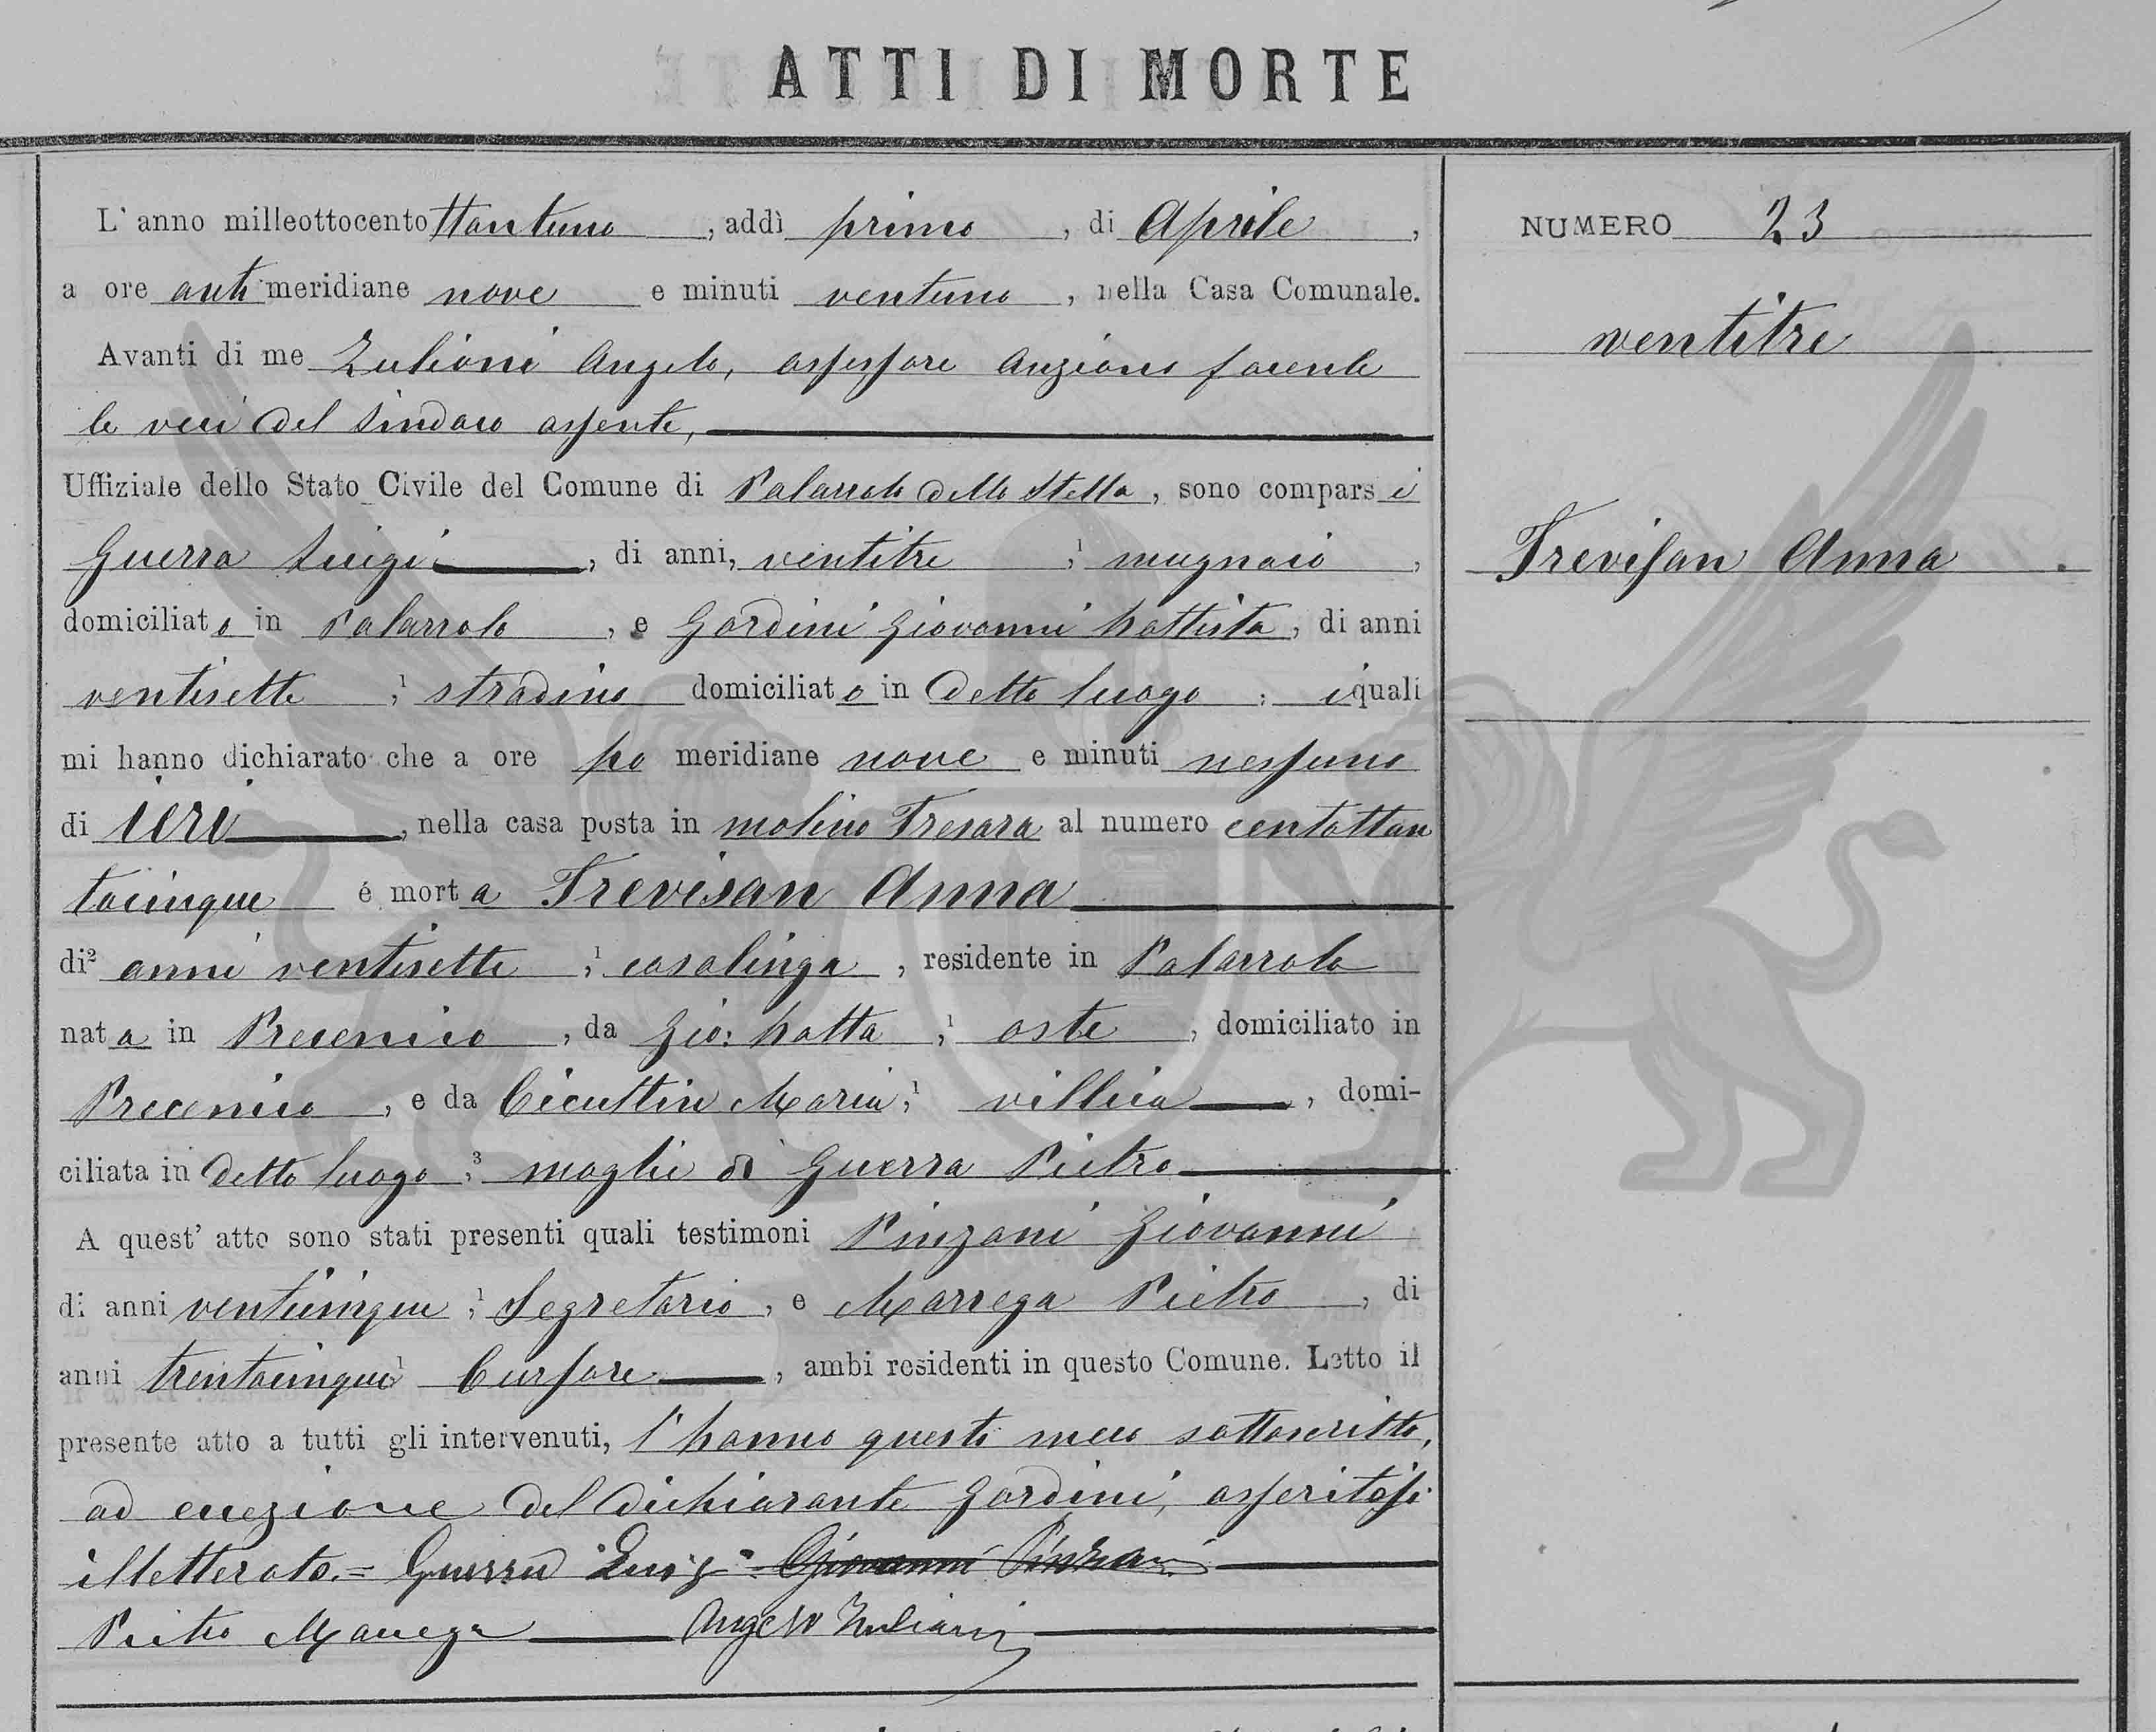 ATTI DI MORTE
NUMERO 23
ventitre
Trevisan Anna .
L'anno milleottocentottantuno, addì primo, di Aprile,
a ore antimeridiane nove e minuti ventuno, nella Casa Comunale.
Avanti di me Zulioni Angelo, assessore anziano facente
le veci del Sindaco assente,
Uffiziale dello Stato Civile del Comune di Palazzolo dello Stella, sono comparsi
Guerra Luigi, di anni, ventitre ;¹ mugnaio,
domiciliato in Palazzolo, e Gardini Giovanni Battista, di anni
ventisette ;¹ stradino domiciliato in detto luogo ; i quali
mi hanno dichiarato che a ore po meridiane nove e minuti nessuno
di ieri, nella casa posta in molino Tresara al numero centottan
tacinque é morta Trevisan Anna
di² anni ventisette ;¹ casalinga, residente in Palazzolo
nata in Precenico, da Gio: Batta ;¹ oste, domiciliato in
Precenico, e da Cicuttin Maria ;¹ villica, domi-
ciliata in detto luogo ;³ moglie di Guerra Pietro
A quest' atto sono stati presenti quali testimoni Pinzani Giovanni
di anni venticinque ;¹ Segretario, e Marrega Pietro, di
anni trentacinque ¹ Cursore, ambi residenti in questo Comune. Letto il
presente atto a tutti gli intervenuti, l'hanno questi meco sottoscritto,
ad eccezione del dichiarante Gardini, asseritosi
illetterato.= Guerra Luigi Giovanni Pinzani
Pietro Marrega Angelo Zuliani